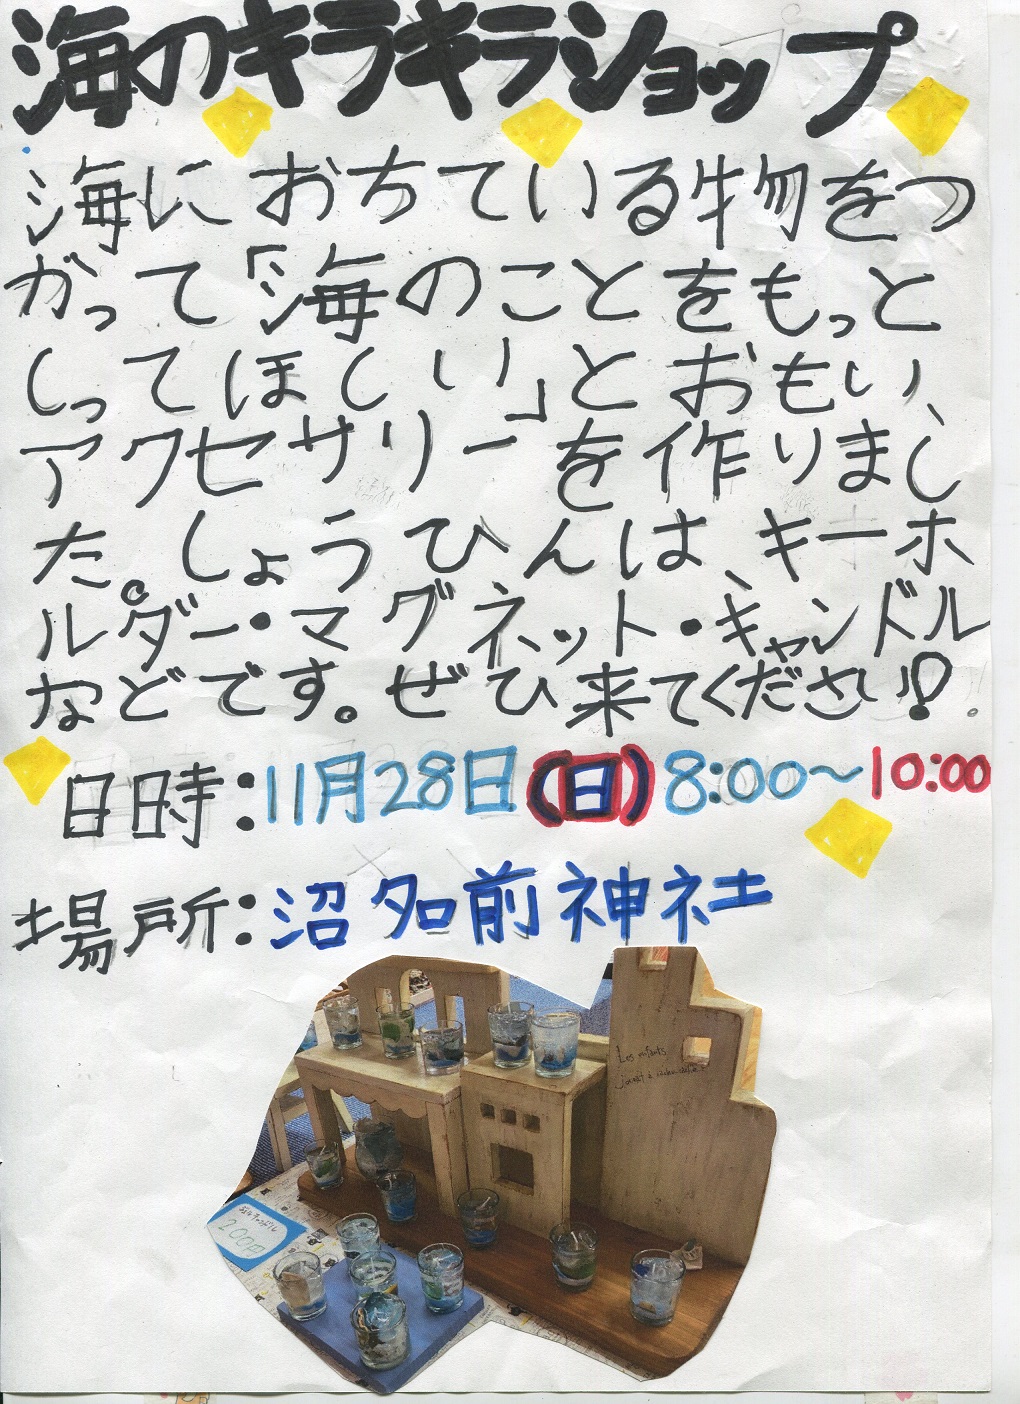 海のキラキラショップ
海におちている物をつ
かって「海のことをもっと
しってほしい」とおもい、
アクセサリーを作りまし
た。しょうひんは、キーホ
ルダー・マグネット・キャンドル
などです。ぜひ来てください!
日時:11月28日(日)8:00～10:00
場所:沼名前神社
Les enfants
200円